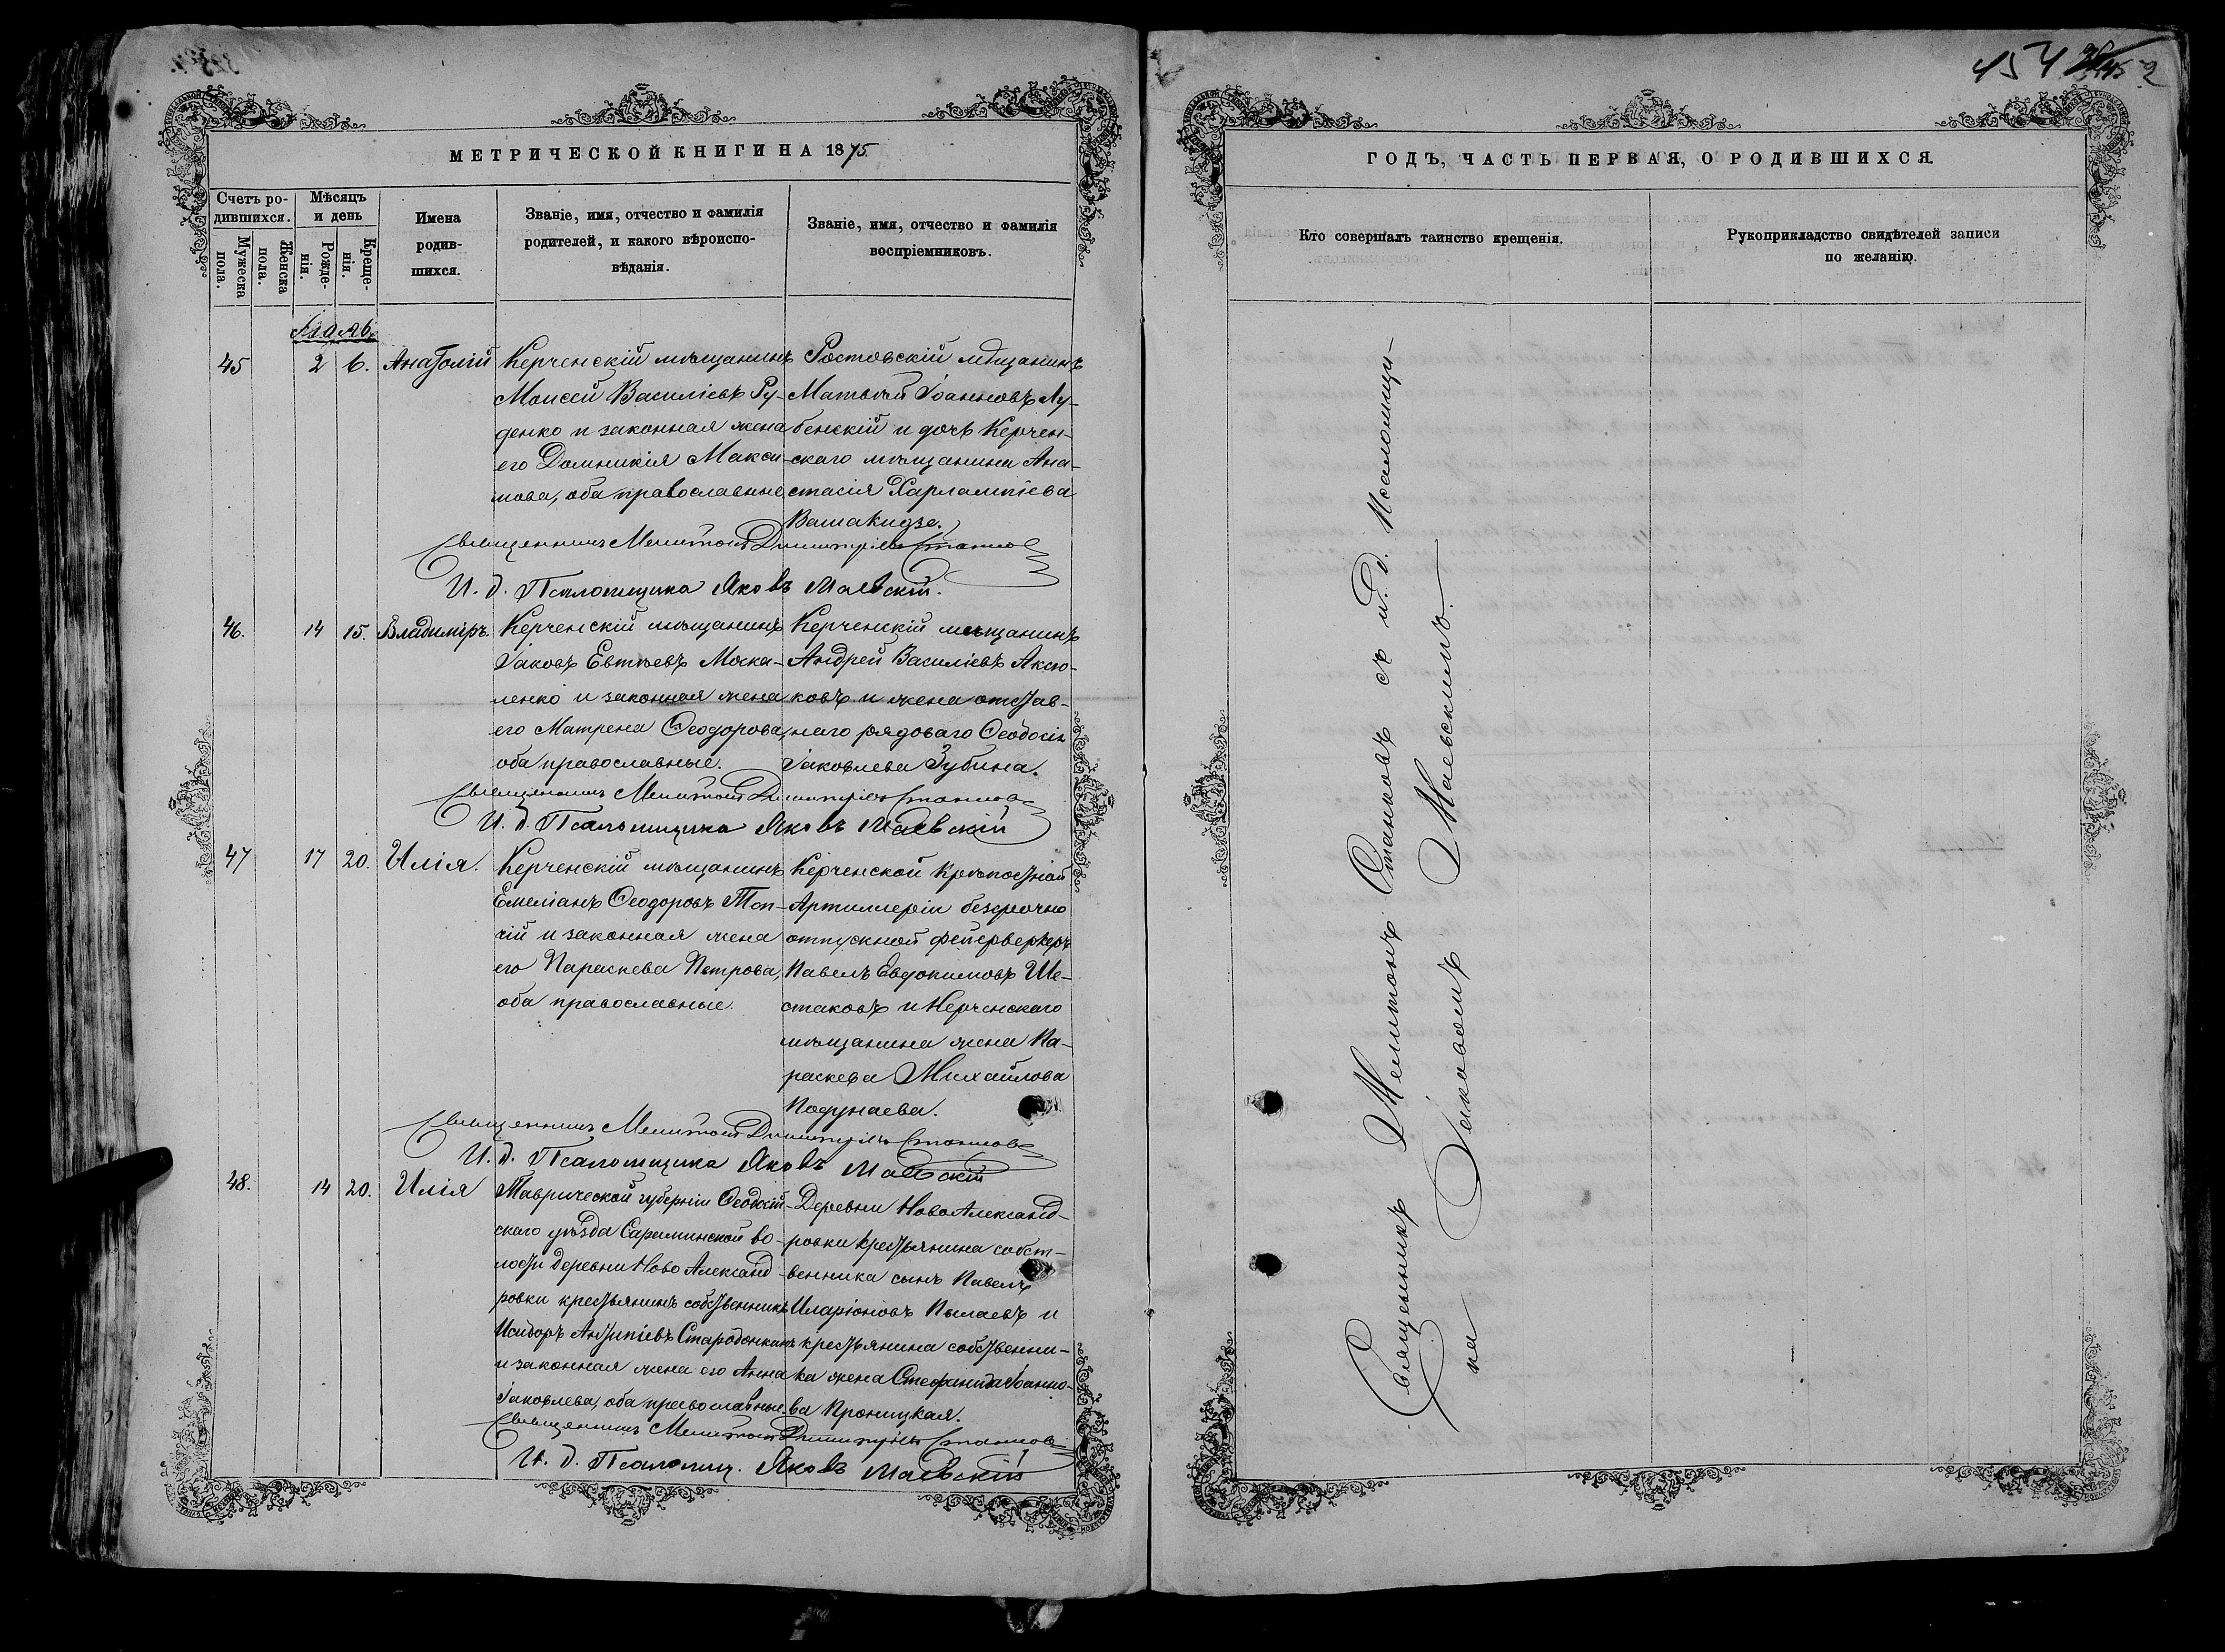 МЕТРИЧЕСКОЙ КНИГИ НА 1875.
Счетъ ро-
дившихся.
Мужеска
пола.
Женска
пола.
Мѣсяцъ
и день
Рожде-
нія.
Креще-
нія.
Имена
родив-
шихся.
Званіе, имя, отчество и фамилія
родителей, и какого вѣроиспо-
вѣданія.
Званіе, имя, отчество и фамилія
воспріемниковъ.
45
2
6.
Анатолій
Керченскій мѣщанинъ
Моисей Василіевъ Ру-
денко и законная жена
его Домникія Макси-
мова, оба православные
Ростовскій мѣщанинъ
Матвѣй Іоанновъ Лу-
бенскій и дочь Керчен-
скаго мѣщанина Ана-
стасія Харлампіева
Вашакидзе.
Священникъ Мелитонъ Димитріевъ Станковъ
И. д. Псаломщика Яковъ Маевскій.
46.
14
15.
Владиміръ.
Керченскій мѣщанинъ
Іаковъ Евтіевъ Моска-
ленко и законная жена
его Матрена Ѳеодорова,
оба православные.
Керченскій мѣщанинъ
Андрей Василіевъ Аксю-
ковъ и жена отстав-
наго рядоваго Ѳеодосія
Іаковлева Зубина.
Священникъ Мелитонъ Димитріевъ Станковъ
И. д. Псаломщика Яковъ Маевскій
47
17
20.
Илія.
Керченскій мѣщанинъ
Емеліанъ Ѳеодоровъ Топ-
чій и законная жена
его Параскева Петрова,
оба православные.
Керченской Крѣпостной
Артиллеріи безсрочно
отпускной фейерверкеръ
Павелъ Евдокимовъ Ше-
стаковъ и Керченскаго
мѣщанина жена Па-
раскева Михайлова
Подунаева.
Священникъ Мелитонъ Димитріевъ Станковъ
И. д. Псаломщика Яковъ Маевскій
48.
14
20.
Илія
Таврической губерніи Ѳеодосій-
скаго уѣзда Сараминской во-
лости деревни Ново Александ-
ровки крестьянинъ собственникъ
Исидоръ Антипіевъ
и законная жена его Анна
Іаковлева, оба православные.
Деревни Ново Александ-
ровки крестьянина собст-
венника сынъ Павелъ
Иларіоновъ Пылаевъ и
крестьянина собственни-
ка жена Стефанида Іоанно-
ва Кроницкая.
Священникъ Мелитонъ Димитріевъ Станковъ
И. д. Псаломщ. Яковъ Маевскій
154
ГОДЪ, ЧАСТЬ ПЕРВАЯ, О РОДИВШИХСЯ.
Кто совершалъ таинство крещенія.
Рукоприкладство свидѣтелей записи
по желанію.
Священникъ Мелитонъ Станковъ съ и. д. Псаломщи-
ка Іаковомъ Маевскимъ.